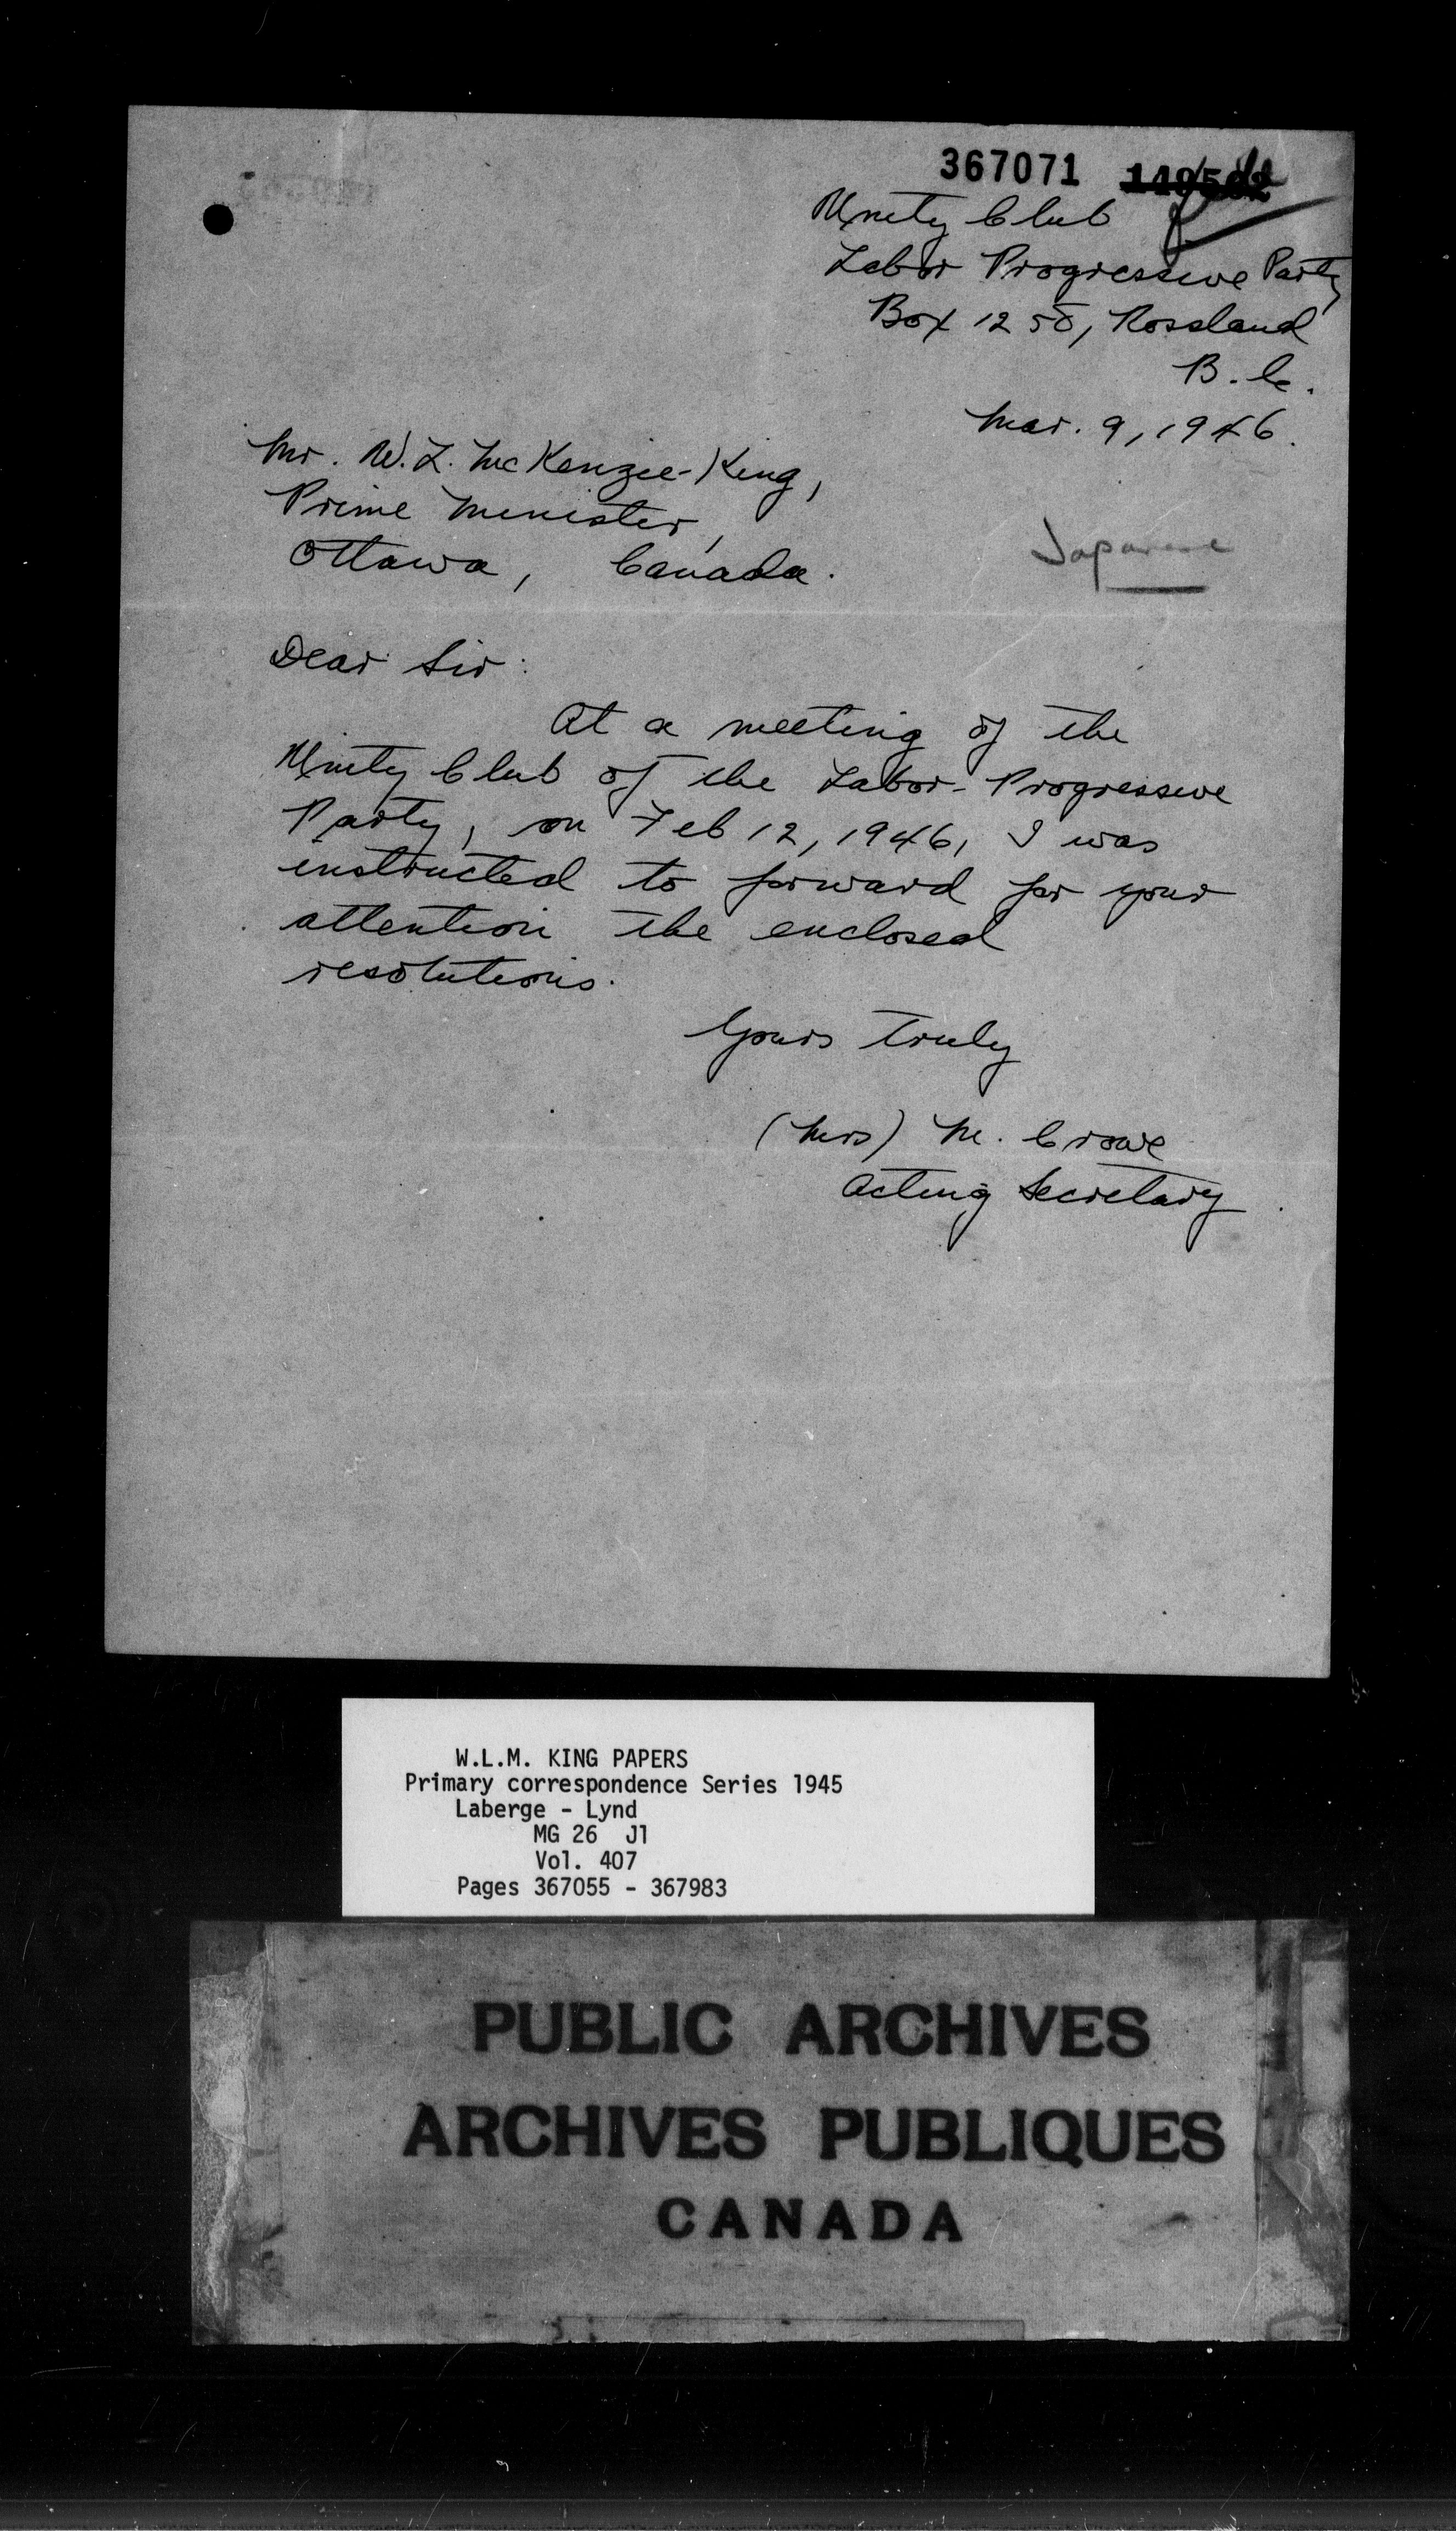 367071
Unity Club
Labor Progressive Party
Box 1250, Rossland
B.C.
Mar. 9, 1946.
Mr. W. L. McKenzie-King,
Prime Minister,
Ottawa, Canada.
Japanese
Dear Sir:
At a meeting of the
Unity Club of the Labor-Progressive
Party, on Feb 12, 1946, I was
instructed to forward for your
attention the enclosed
resolutions.
Yours truly
(Mrs) M. Crowe
Acting Secretary.
W.L.M. KING PAPERS
Primary correspondence Series 1945
Laberge - Lynd
MG 26 J1
Vol. 407
Pages 367055 - 367983
PUBLIC ARCHIVES
ARCHIVES PUBLIQUES
CANADA